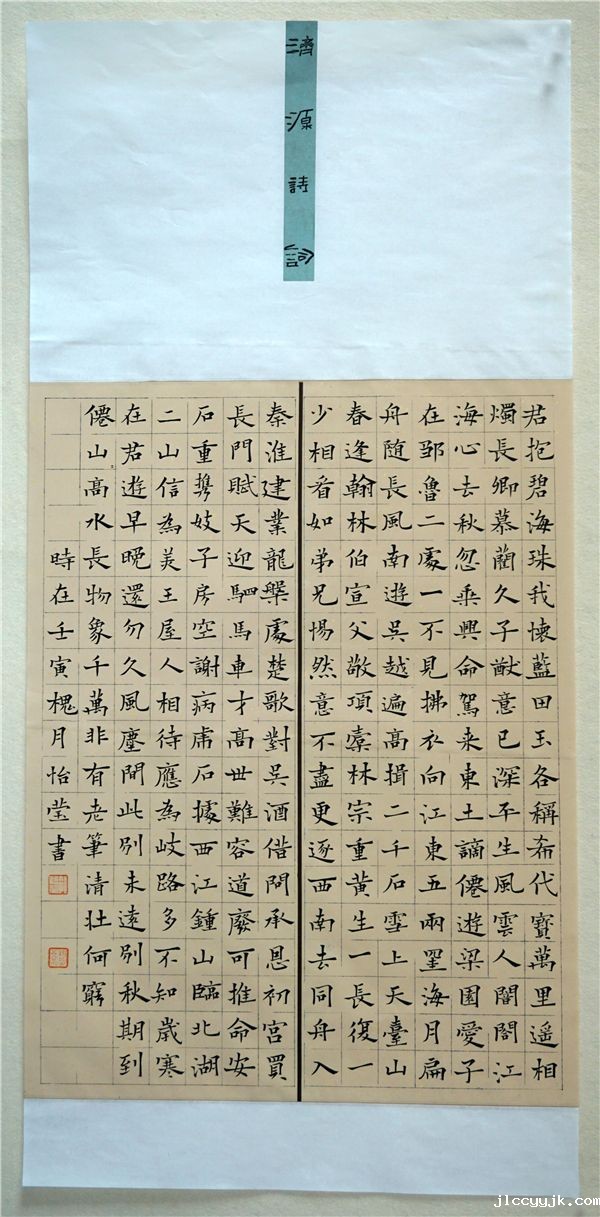 濟源詩
君抱碧海珠我懷藍田玉各稱希代寶萬里遥相
燭長卿慕藺久子猷意已深平生風雲人闇閤江
海心去秋忽乘興命駕来東土謫僊遊梁園愛子
在鄒魯二處一不見拂衣向江東五兩罣海月扁
舟随長風南遊吳越遍高揖二千石雪上天臺山
春逢翰林伯宣父敬項橐林宗重黃生一長復一
少相看如弟兄惕然意不盡更逐西南去同舟入
秦淮建業龍槃處楚歌對吳酒借問承恩初宮買
長門賦天迎駟馬車才高世難容道廢可推命安
石重携妓子房空謝病虎石據西江鍾山臨北湖
二山信為美王屋人相待應為岐路多不知歲寒
在君遊早晚還勿久風塵間此別未遠別秋期到
僊山高水長物象千萬非有老筆清壮何窮
時在壬寅槐月怡莹書
jlccyyjk.com